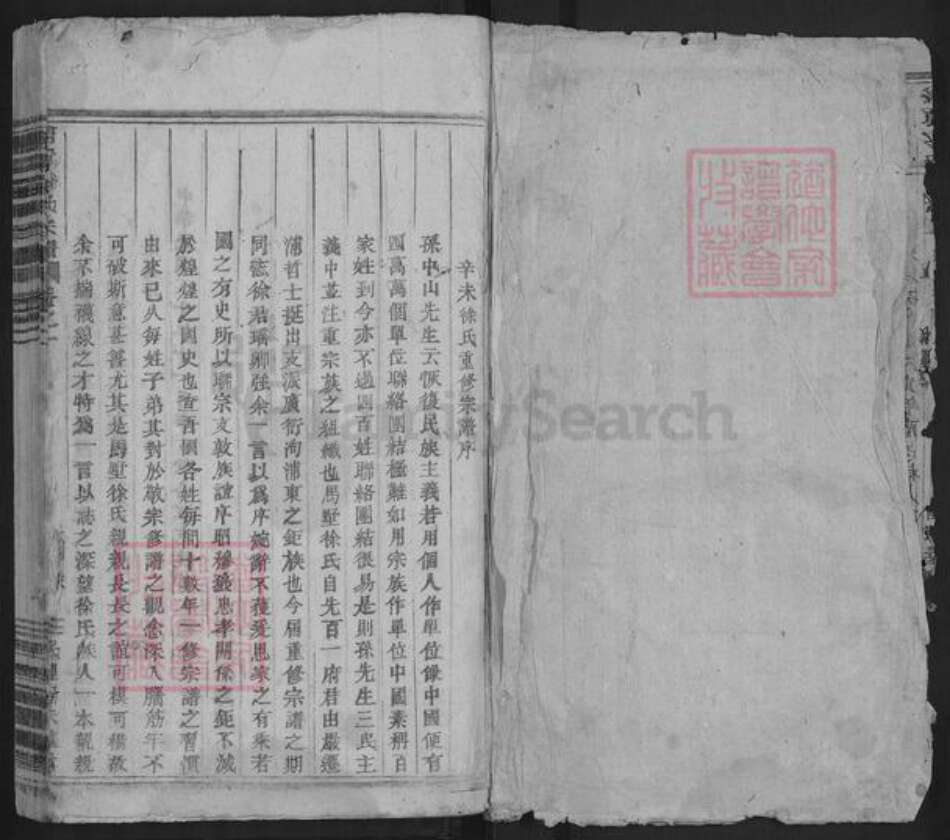 辛未徐氏重修宗譜序
孫中山先生云恢復民族主義若用個人作單位錄中國便有
四萬萬個單位聯絡團結極難如用宗族作單位中國素稱百
家姓到今亦不過四百姓聯絡團結很易是則孫先生三民主
義中並注重宗族之組織也馬墅徐氏自先百一府君由嚴遷
浦哲士挺出支派廣衍洵浦東之鉅族也今屆重修宗譜之期
同徐君瑤卿強余一言以為序婉辭不獲爰思家之有乘若
國之有史所以聯宗支敦族誼序昭穆孝關係之鉅不減
於煌煌之國史也查吾國各姓每間十數年一修宗譜之習慣
由來已久每姓子弟其對於敬宗修譜之觀念深入腦筋牢不
可破斯意甚善尤其是馬墅徐氏親親長長之誼可模可楷故
余不揣襪線之才特為一言以誌之深望徐氏族人一本親親
FamilySearch